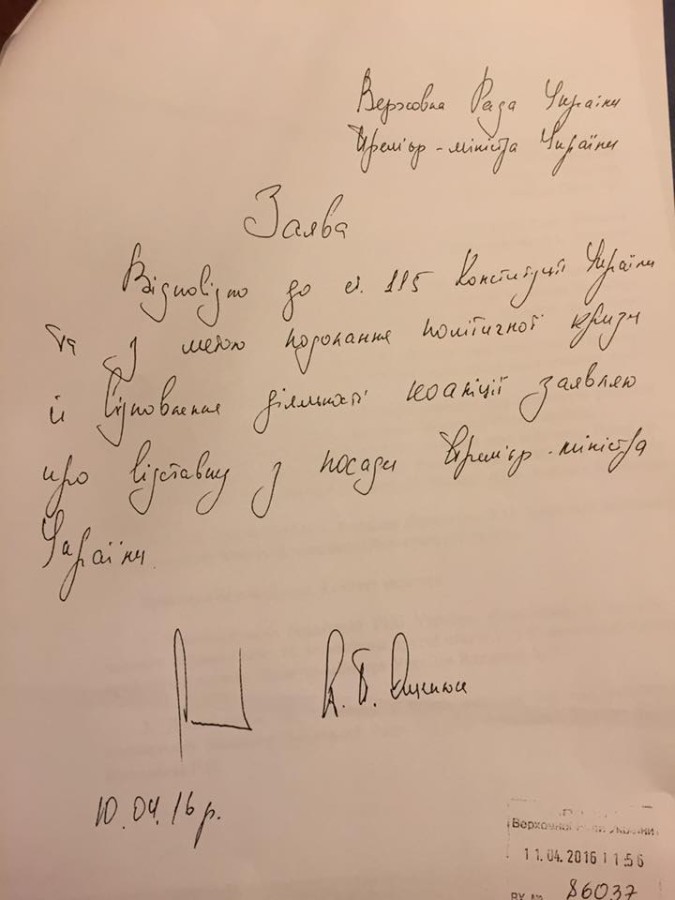 Верховна Рада України
Премієр-міністра України
Заява
Відповідно до ст. 115 Конституції України
та з метою подолання політичної кризи
й відновлення діяльності коаліції заявляю
про відставку з посади Премієр-міністра
України.
А.П. Яценюк
10.04.16 р.
Верховної Ради України
11.04.2016 11:56
86037